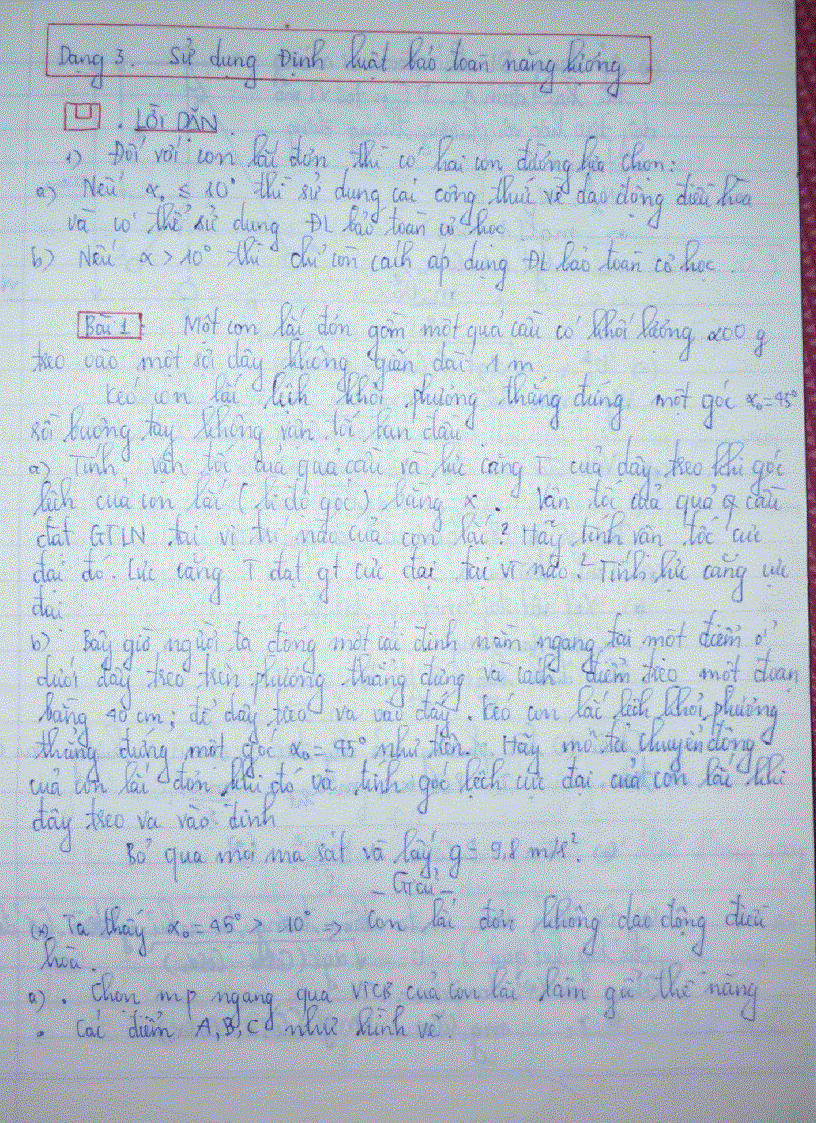 Dạng 3. Sử dụng Định luật bảo toàn năng lượng
. LỜI DẪN.
1) Đối với con lắc đơn thì có hai con đường lựa chọn:
a) Nếu α₀ ≤ 10° thì sử dụng các công thức về dao động điều hòa
và có thể sử dụng ĐL bảo toàn cơ học
b) Nếu α > 10° thì chỉ còn cách áp dụng ĐL bảo toàn cơ học.
Bài 1: Một con lắc đơn gồm một quả cầu có khối lượng 200 g
treo vào một sợi dây không giãn dài 1 m.
Kéo con lắc lệch khỏi phương thẳng đứng một góc α₀ = 45°
rồi buông tay không vận tốc ban đầu
a) Tính vận tốc của quả cầu và lực căng T của dây treo khi góc
lệch của con lắc (li độ góc) bằng α. Vận tốc của quả cầu
đạt GTLN tại vị trí nào của con lắc? Hãy tính vận tốc cực
đại đó. Lực căng T đạt gt cực đại tại vị nào? Tính lực căng cực
đại
b) Bây giờ người ta đóng một cái đinh nằm ngang tại một điểm ở
dưới dây treo trên phương thẳng đứng và cách điểm treo một đoạn
bằng 40 cm; để dây treo va vào đấy. Kéo con lắc lệch khỏi phương
thẳng đứng một góc α₀ = 45° như trên. Hãy mô tả chuyển động
của con lắc đơn khi đó và tính góc lệch cực đại của con lắc khi
dây treo va vào đinh
Bỏ qua mọi ma sát và lấy g = 9,8 m/s².
- Giải -
(*) Ta thấy α₀ = 45° > 10° ⇒ con lắc đơn không dao động điều
hoà.
a) . Chọn mp ngang qua VTCB của con lắc làm gốc thế năng
. Các điểm A, B, C như hình vẽ.